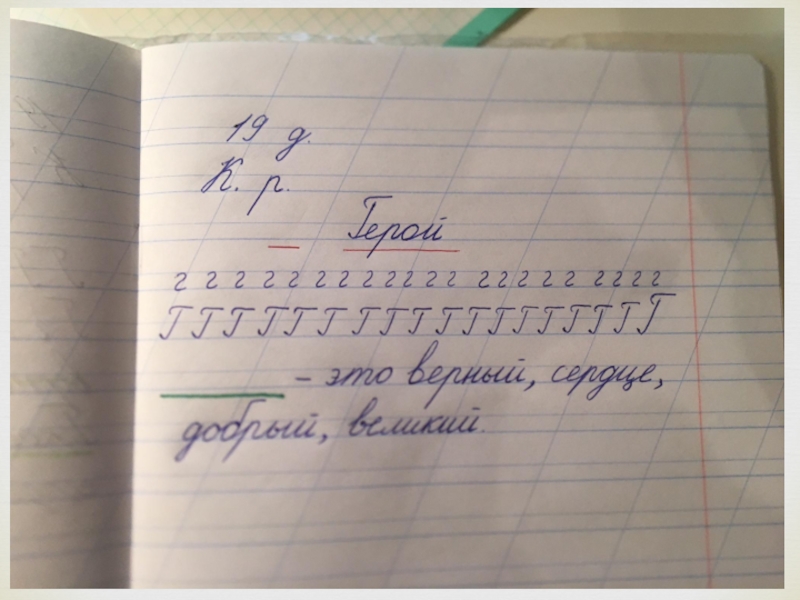 19 д.
К. р.
Герой
г г г г г г г г г г г г г г г г г г г г г
Г Г Г Г Г Г Г Г Г Г Г Г Г Г Г Г Г Г
– это верный, сердце,
добрый, великий.